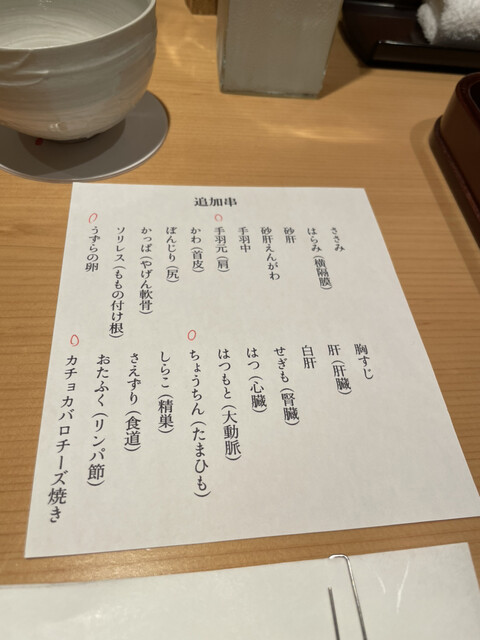 追加串
ささみ
はらみ（横隔膜）
砂肝
砂肝えんがわ
手羽中
手羽元（肩）
かわ（首皮）
ぼんじり（尻）
かっぱ（やげん軟骨）
ソリレス（ももの付け根）
うずらの卵
胸すじ
肝（肝臓）
白肝
せぎも（腎臓）
はつ（心臓）
はつもと（大動脈）
ちょうちん（たまひも）
しらこ（精巣）
さえずり（食道）
おたふく（リンパ節）
カチョカバロチーズ焼き